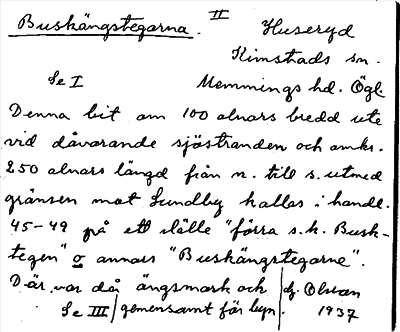 Buskängstegarna. II Huseryd
Kimstads sn.
Se I Memmings hd. Ögl.
Denna bit om 100 alnars bredd ute
vid dåvarande sjöstranden och omkr.
250 alnars längd från n. till s. utmed
gränsen mot Sundby kallas i handl.
45-49 på ett ställe "förra s.k. Busk-
tegen" o annars "Buskängstegarne".
Där var då ängsmark och dj. Olsson
Se III gemensamt för byn. 1937